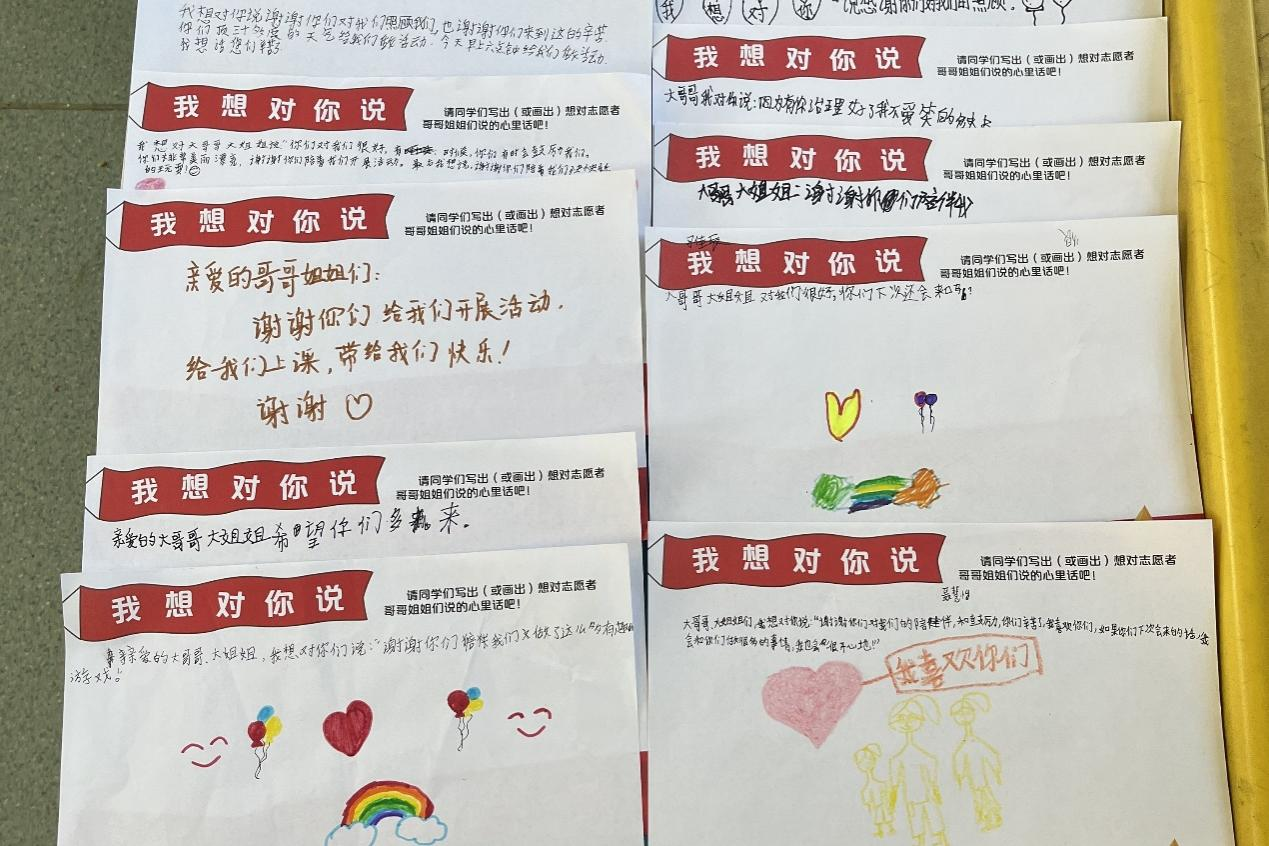 我想对你说谢谢你们对我们照顾我们,也谢谢你们来到这的辛苦
你们顶三十多度的天气给我们做活动.今天早上六点钟给我们做活动.
我想请您们辛苦
我想对你说
请同学们写出(或画出)想对志愿者
哥哥姐姐们说的心里话吧!
我想对大哥哥大姐姐说“你们对我们很好,有时候,你们有时会鼓励我们。
你们非常美丽漂亮,谢谢你们陪着我们开展活动。最后我想说,谢谢你们陪着我们
我想对你说
请同学们写出(或画出)想对志愿者
哥哥姐姐们说的心里话吧!
亲爱的哥哥姐姐们:
谢谢你们给我们开展活动.
给我们上课,带给我们快乐!
谢谢
我想对你说
请同学们写出(或画出)想对志愿者
哥哥姐姐们说的心里话吧!
亲爱的大哥哥大姐姐希望你们多来。
我想对你说
请同学们写出(或画出)想对志愿者
哥哥姐姐们说的心里话吧!
亲爱的大哥哥、大姐姐,我想对你们说:“谢谢你们陪伴我们来做了这么多有趣的
游戏。
我想对你说
我想对你说
请同学们写出(或画出)想对志愿者
哥哥姐姐们说的心里话吧!
大哥哥我对你说:因为有你治理好了我不爱笑的缺点
我想对你说
请同学们写出(或画出)想对志愿者
哥哥姐姐们说的心里话吧!
大哥哥大姐姐:谢谢你们陪伴我
我想对你说
请同学们写出(或画出)想对志愿者
哥哥姐姐们说的心里话吧!
大哥哥大姐姐对我们很好,你们下次还会来吗?
我想对你说
请同学们写出(或画出)想对志愿者
哥哥姐姐们说的心里话吧!
大哥哥、大姐姐们,我想对你说:“谢谢你们对我们的陪伴,和支努力,你们辛苦了,我喜欢你们,如果你们下次会来的话,我
会和你们做服务的事情,我也会“很开心地!”
我喜欢你们